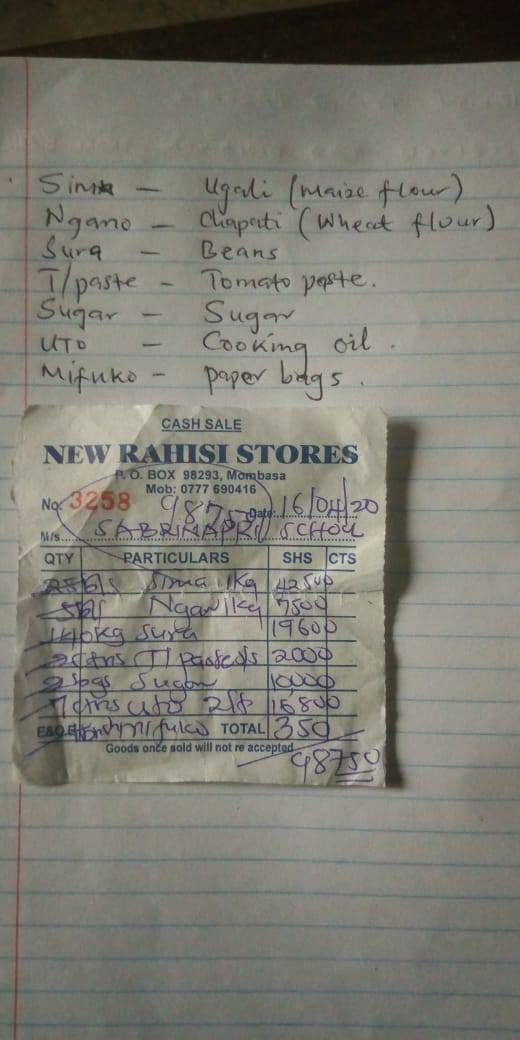 Sima - Ugali (Maize flour)
Ngano - Chapati (Wheat flour)
Sura - Beans
T/paste - Tomato paste.
Sugar - Sugar
UTO - Cooking oil.
Mifuko - paper bags.
CASH SALE
NEW RAHISI STORES
P. O. BOX 98293, Mombasa
Mob: 0777 690416
No. 3258 98750 Date: 16/04/20
M/s. SABRINA PRI SCHOOL
QTY PARTICULARS SHS CTS
Sima 1kg 42500
Ngan 1kg 7500
140kg Sura 19600
T/Paste 2000
Sugar 10,000
7ctns Uto 16,800
E&O.E mifuko TOTAL 350
Goods once sold will not re accepted
98750